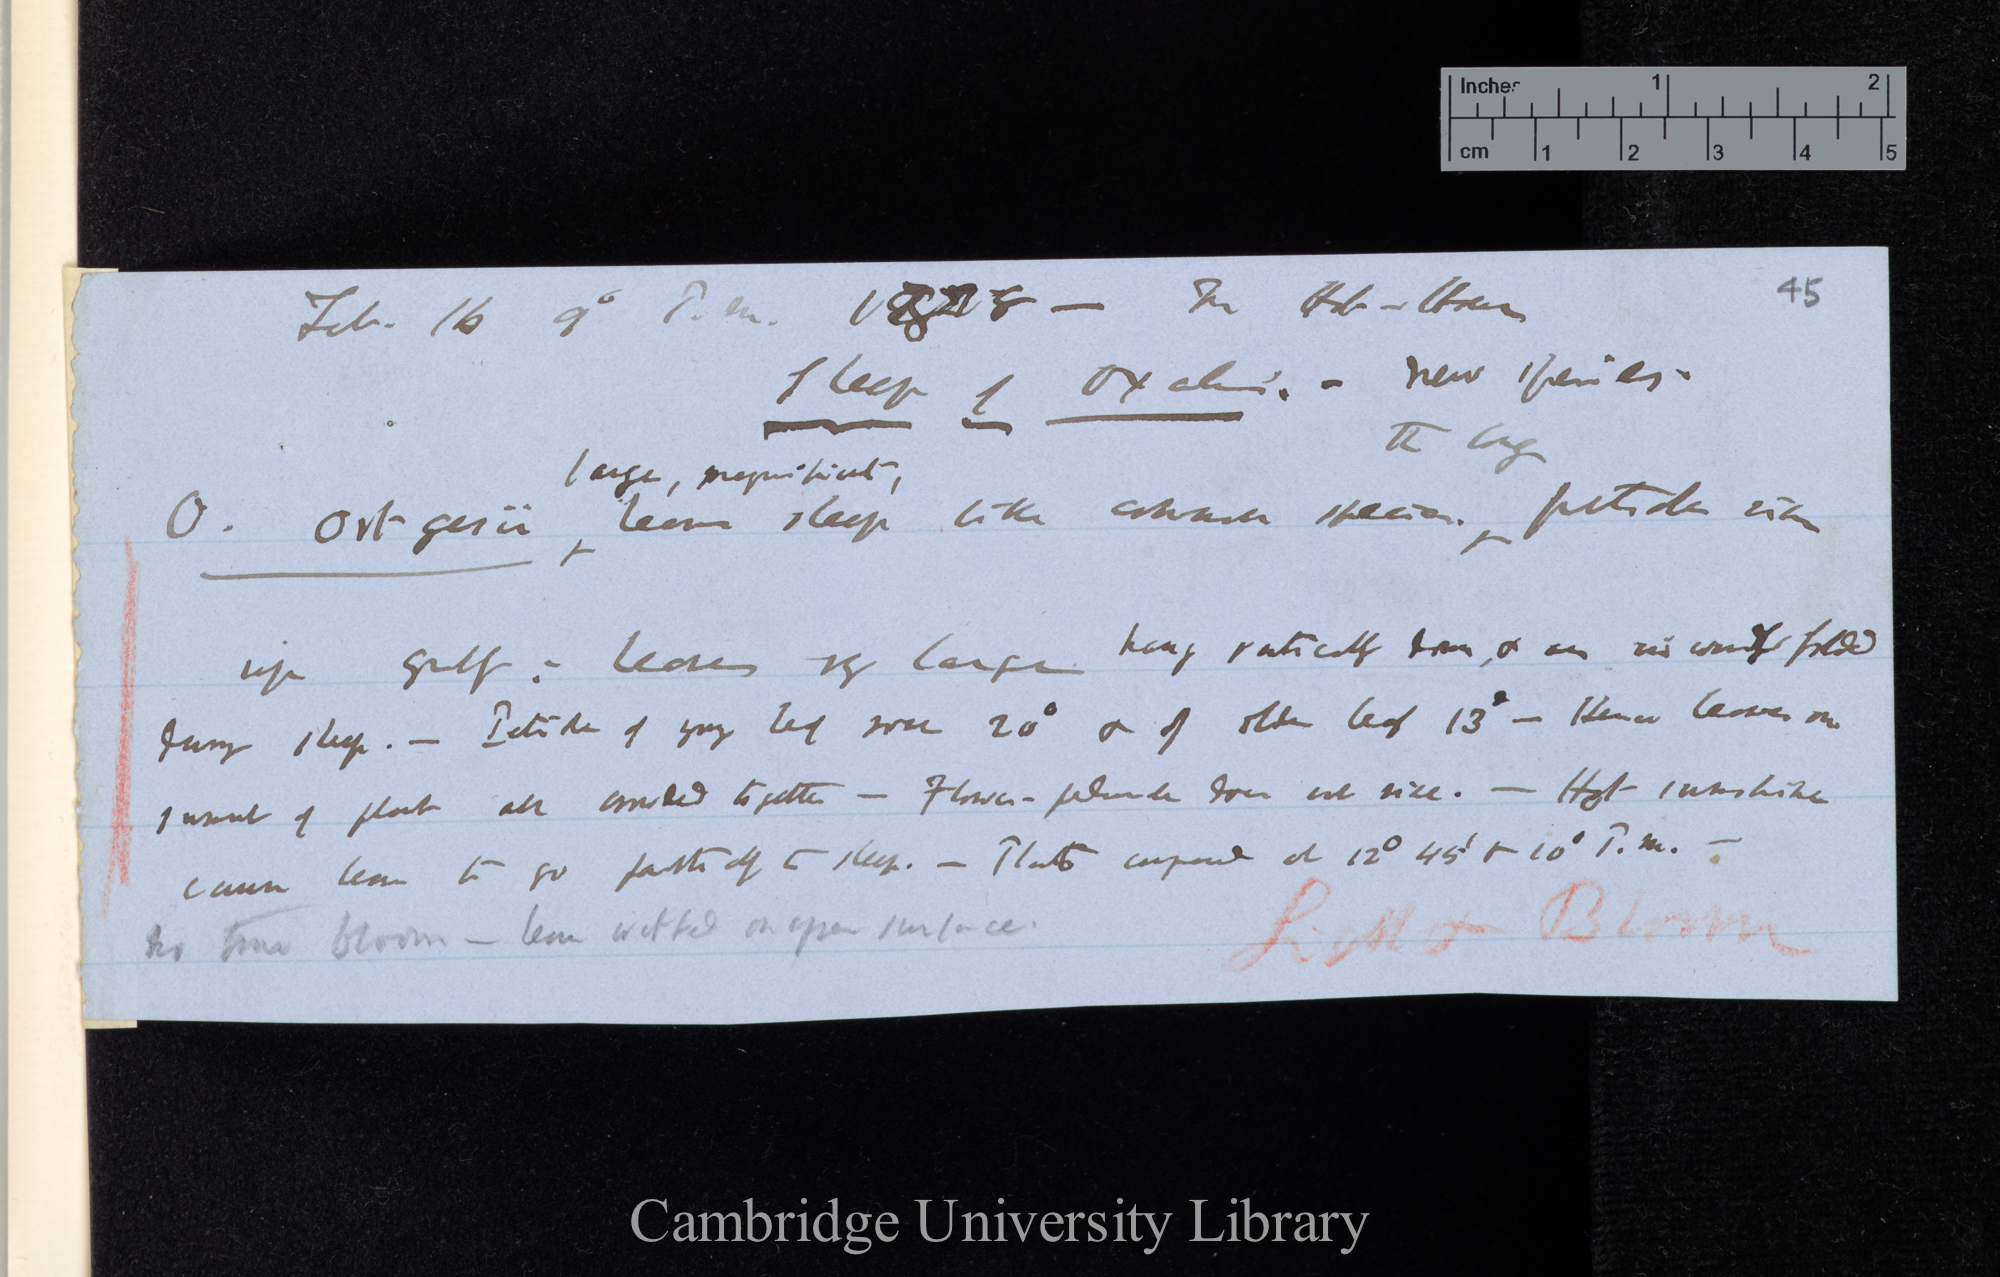 Inches 1 2
cm 1 2 3 4 5
45
Feb. 16 9° P.m. 1878 — In Hot-House
Sleep of Oxalis. - New species.
the long
large, magnificent,
O. Ortgesii leaves sleep like common species. petioles rise
up greatly: leaves very large hang vertically down, & are inwardly folded
during sleep. — Petiole of young leaf rose 20° & of older leaf 13° — Hence leaves on
summit of plant are crowded together — Flower-peduncle does not rise. — Hot sunshine
causes leaves to go partially to sleep. — Plants compared at 12° 45' & 10° P.m. —
No true bloom — leaves wetted on upper surface.
& Bloom
Cambridge University Library